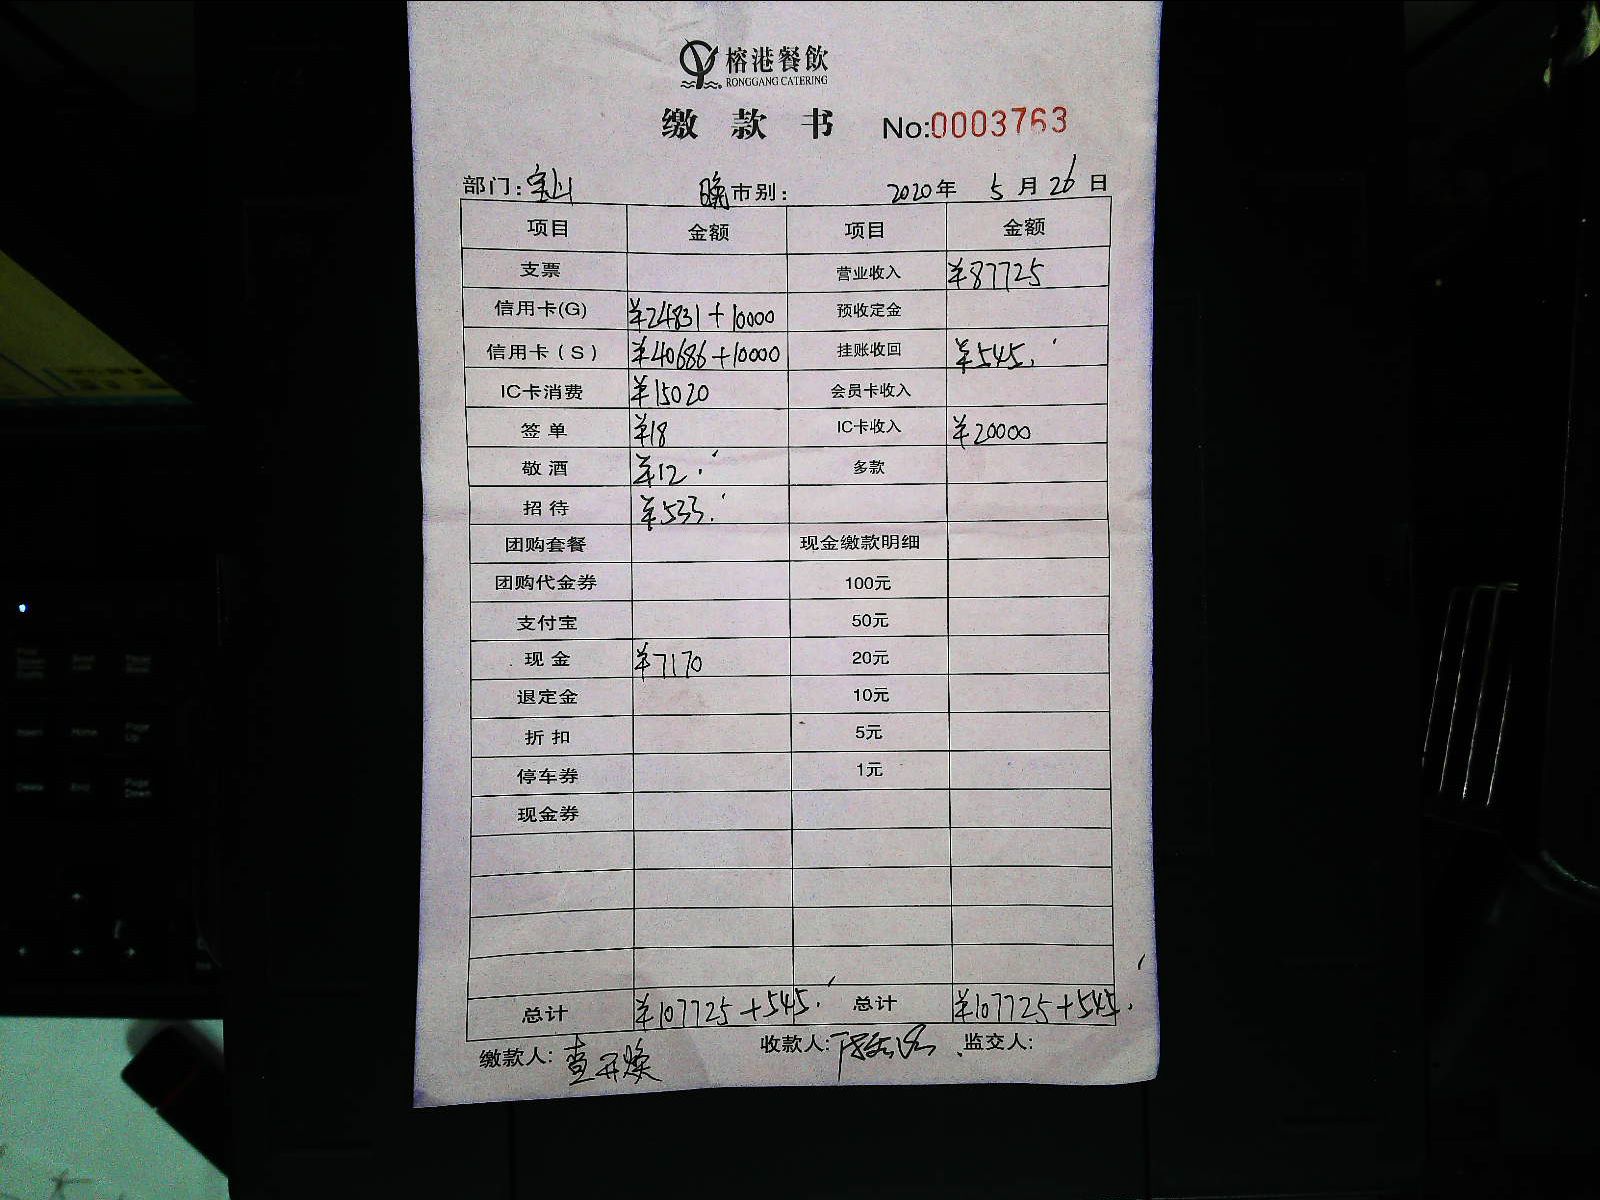 榕港餐飲
RONGGANG CATERING
缴 款 书 No:0003763
部门: 宝山 晚市别: 2020年 5月26日
项目 金额 项目 金额
支票 营业收入 ¥87725
信用卡(G) ¥24831+10000 预收定金
信用卡(S) ¥40686+10000 挂账收回 ¥545.'
IC卡消费 ¥15020 会员卡收入
签单 ¥18 IC卡收入 ¥20000
敬酒 ¥12.' 多款
招待 ¥533.'
团购套餐 现金缴款明细
团购代金券 100元
支付宝 50元
现金 ¥7170 20元
退定金 10元
折扣 5元
停车券 1元
现金券
总计 ¥107725+545.' 总计 ¥107725+545.'
缴款人: 查开焕 收款人: 监交人: